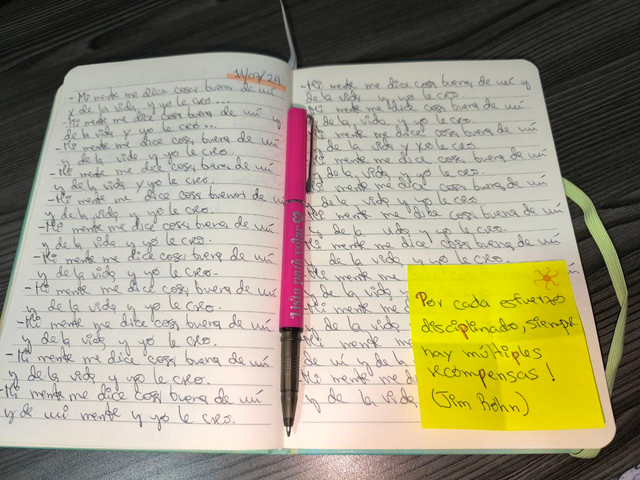 11/07/24
- Mi mente me dice cosas buenas de mí
y de la vida y yo le creo...
- Mi mente me dice cosas buena de mí y
de la vida y yo le creo...
- Mi mente me dice cosas buena de mí
y de la vida y yo le creo.
- Mi mente me dice cosas buena de mí
y de la vida y yo le creo.
- Mi mente me dice cosas buenas de mí
y de la vida y yo le creo.
- Mi mente me dice cosas buena de mí
y de la vida y yo le creo.
- Mi mente me dice cosas buena de mí
y de la vida y yo le creo.-
- Mi mente me dice cosas buena de mí
y de la vida y yo le creo.
- Mi mente me dice cosas buena de mí
y de la vida y yo le creo.
- Mi mente me dice cosas buena de mí
y de la vida y yo le creo.
- Mi mente me dice cosas buena de mí
y de mi mente y yo le creo.
- Mi mente me dice cosas buena de mí y
de la vida y yo le creo.
Mi mente me dice cosas buena de mí
y de la vida y yo le creo
mente me dice cosas buena de mí
de la vida y yo le creo
mente me dice cosas buena de mí
y de la vida y yo le creo.
Mi mente me dice cosas buena de mí
y de la vida y yo le creo.
Mi mente me dice cosas buena de mí
y de la vida y yo le creo.
Mi mente me dice cosas buena de mí
de la vida y yo le creo.
Mi mente me
de la vida
Mi mente me
de la vida
mente me
de mí y de la
Mi mente me d
y de la vida
Lista para volar
Por cada esfuerzo
disciplinado, siempre
hay múltiples
recompensas!
(Jim Rohn)